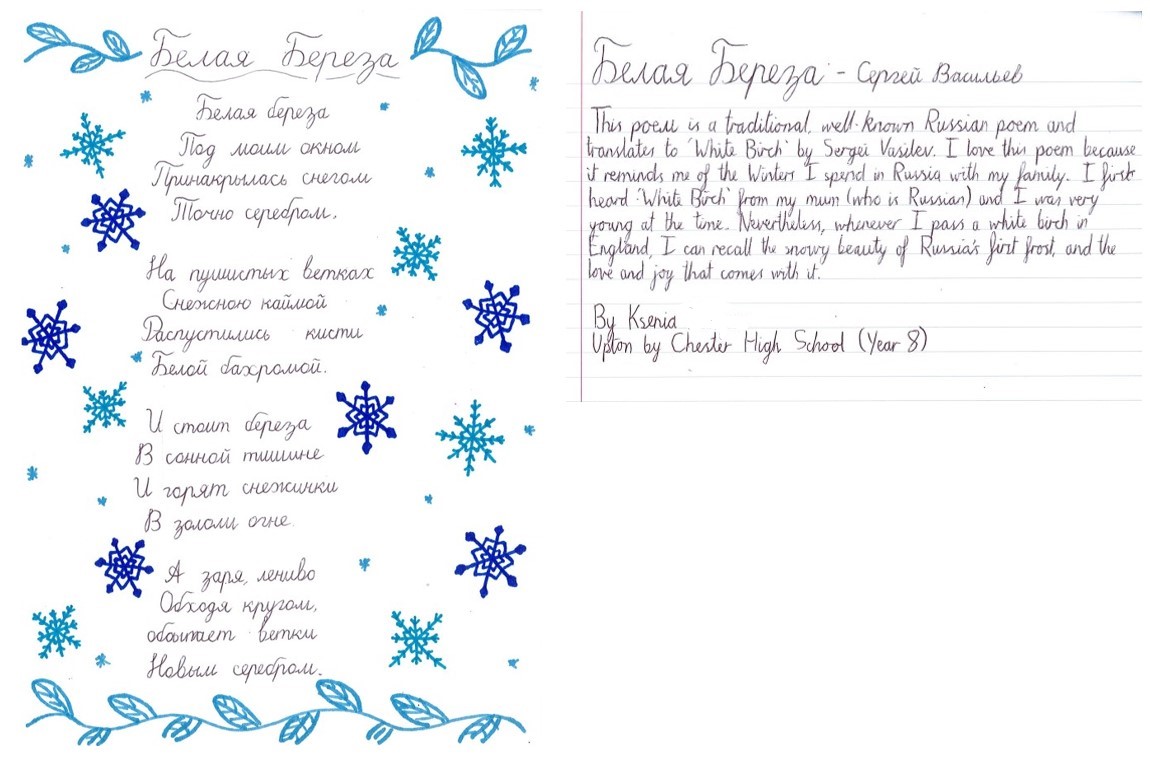 Белая Береза
Белая береза
Под моим окном
Принакрылась снегом
Точно серебром.
На пушистых ветках
Снежною каймой
Распустились кисти
Белой бахромой.
И стоит береза
В сонной тишине
И горят снежинки
В золоти огне.
А заря, лениво
Обходя кругом,
обсыпает ветки
Новым серебром.
Белая Береза - Сергей Васильев
This poem is a traditional, well-known Russian poem and
translates to 'White Birch' by Sergei Vasilev. I love this poem because
it reminds me of the Winters I spend in Russia with my family. I first
heard 'White Birch' from my mum (who is Russian) and I was very
young at the time. Nevertheless, whenever I pass a white birch in
England, I can recall the snowy beauty of Russia's first frost, and the
love and joy that comes with it.
By Ksenia
Upton by Chester High School (Year 8)